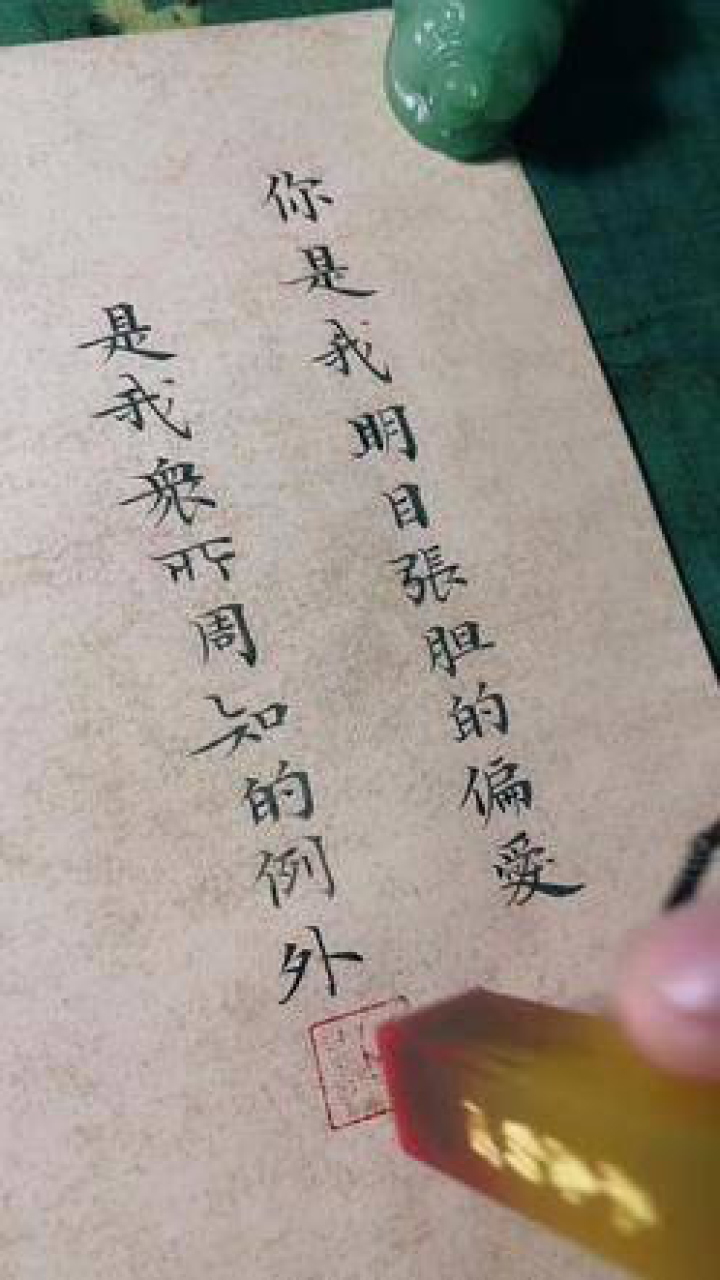 你是我明目張胆的偏愛
是我衆所周知的例外